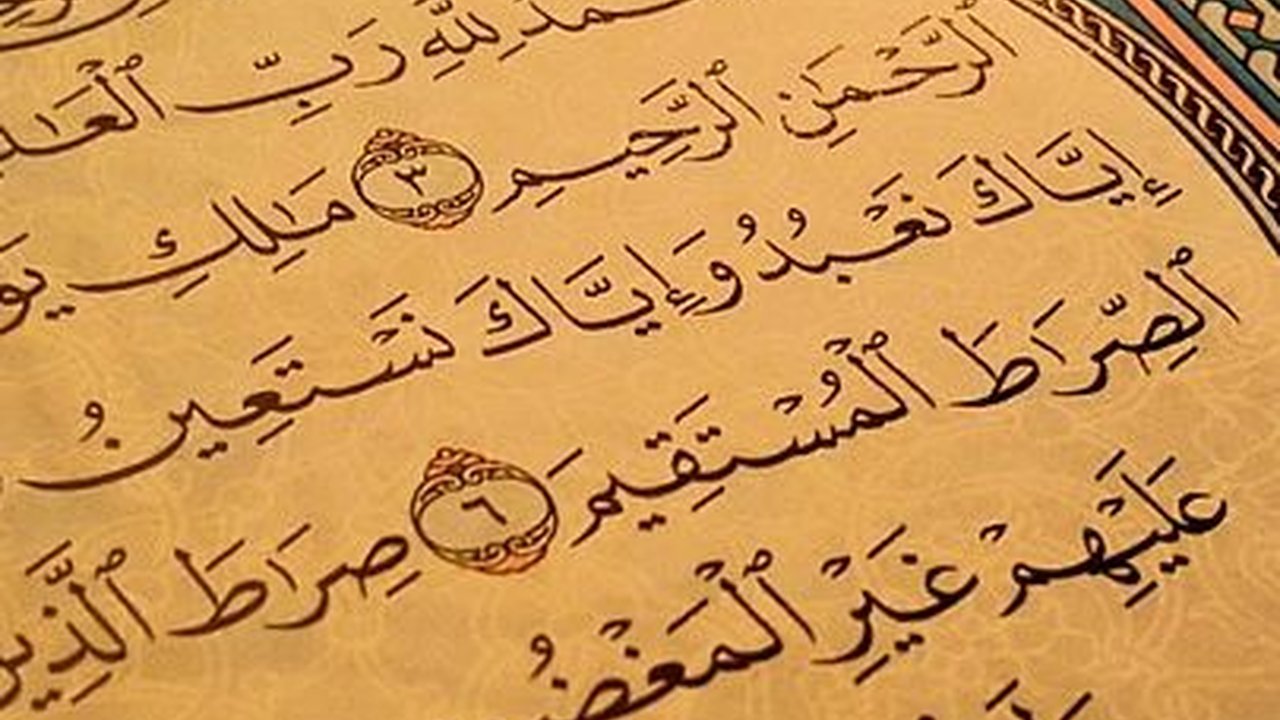 لِلَّهِ رَبِّ ٱلْعَـٰ
ٱلرَّحْمَـٰنِ ٱلرَّحِيمِ ٣ مَـٰلِكِ يَو
إِيَّاكَ نَعْبُدُ وَإِيَّاكَ نَسْتَعِينُ
ٱلصِّرَاطَ ٱلْمُسْتَقِيمَ ٦ صِرَاطَ ٱلَّذِي
عَلَيْهِمْ غَيْرِ ٱلْمَغْضُ